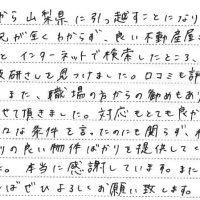 から山梨県に引っ越すことになり
兄が全くわからず、良い不動産屋
とインターネットで検索したところ、
技研さんで見つけました。口コミも
また、職場の方からの勧めもあり
せて頂きました。対応もとても良か
々な条件を言ったのにも関らず、
りの良い物件ばかりを提供して
た。本当に感謝しています。また
ばぜひよろしくお願い致します。